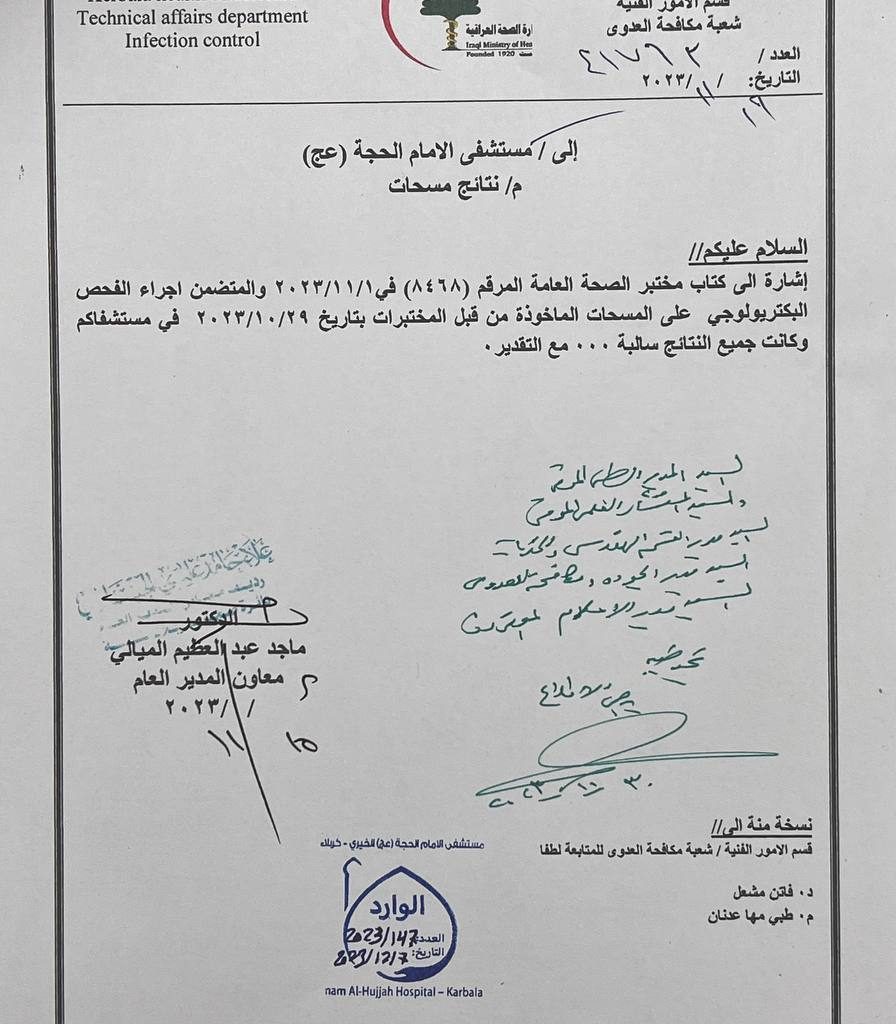 Technical affairs department
Infection control
وزارة الصحة العراقية
Iraqi Ministry of Hea
Founded 1920
قسم الامور الفنية
شعبة مكافحة العدوى
العدد /
التاريخ: / / ٢٠٢٣
إلى / مستشفى الامام الحجة (عج)
م/ نتائج مسحات
السلام عليكم//
إشارة الى كتاب مختبر الصحة العامة المرقم (٨٤٦٨) في٢٠٢٣/١١/١ والمتضمن اجراء الفحص
البكتريولوجي على المسحات الماخوذة من قبل المختبرات بتاريخ ٢٠٢٣/١٠/٢٩ في مستشفاكم
وكانت جميع النتائج سالبة ٠٠٠ مع التقدير٠
السيد المدير
السيد مدير القسم الهندسي
السيد مدير الجودة
السيد مدير الاعلام
الدكتور
ماجد عبد العظيم الميالي
معاون المدير العام
/ / ٢٠٢٣
نسخة منة الى//
قسم الامور الفنية / شعبة مكافحة العدوى للمتابعة لطفا
د٠ فاتن مشعل
م٠ طبي مها عدنان
مستشفى الامام الحجة (عج) الخيري - كربلاء
الوارد
العدد: 2023/147
التاريخ: 2023/12/7
nam Al-Hujjah Hospital – Karbala